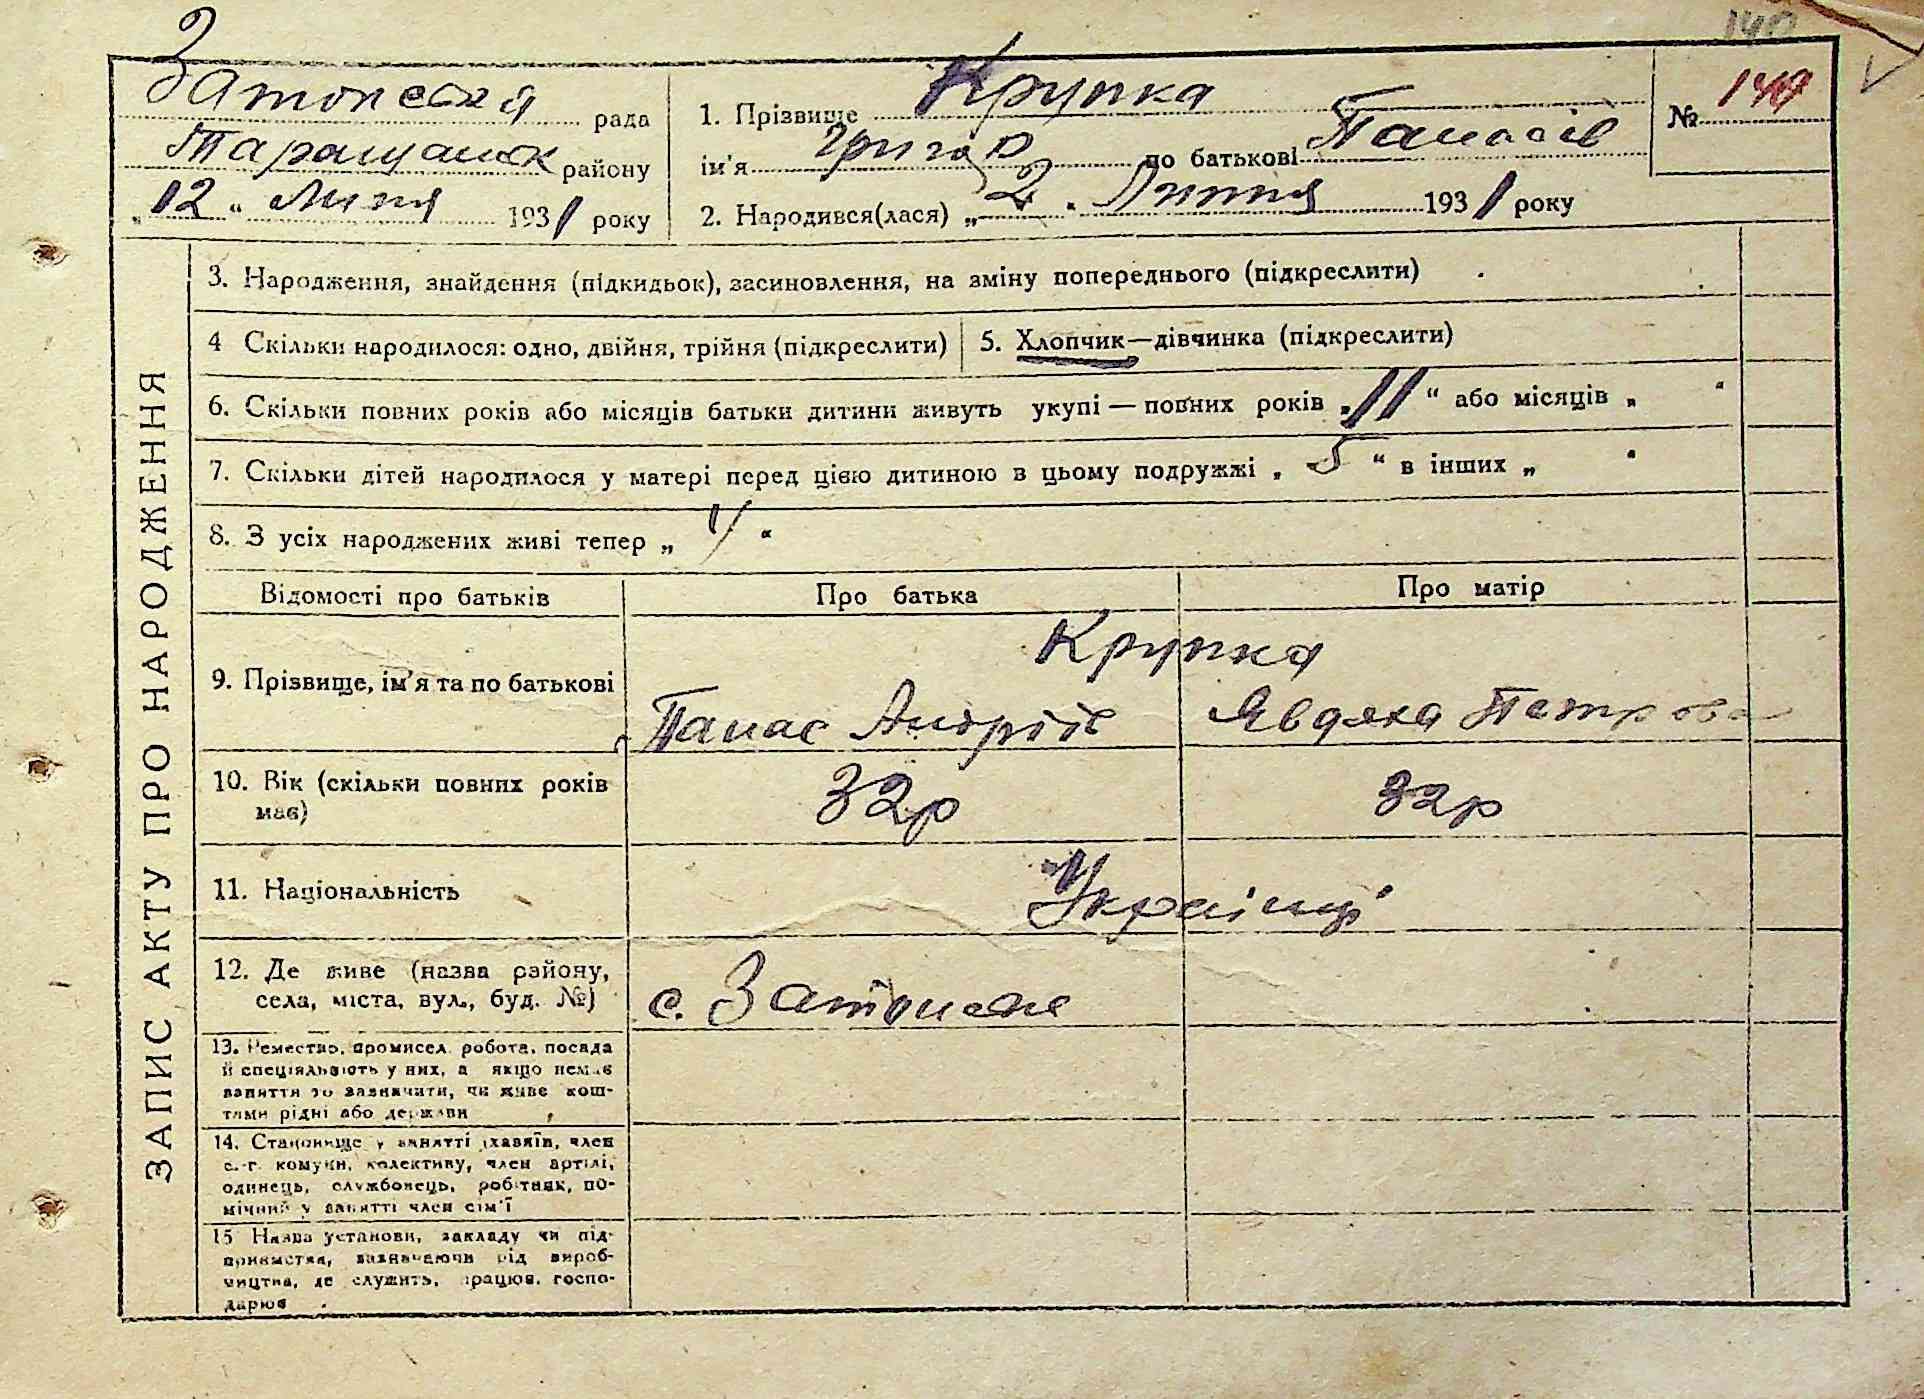 140
Затонская рада
Таращанськ району
„12“ Липня 1931 року
1. Прізвище Крупка
ім'я Григор по батькові Панасів
2. Народився(лася) „2“ Липня 1931 року
№ 140
ЗАПИС АКТУ ПРО НАРОДЖЕННЯ
3. Народження, знайдення (підкидьок), засиновлення, на зміну попереднього (підкреслити)
4 Скільки народилося: одно, двійня, трійня (підкреслити)
5. Хлопчик—дівчинка (підкреслити)
6. Скільки повних років або місяців батьки дитини живуть укупі — повних років „11“ або місяців „ “
7. Скільки дітей народилося у матері перед цією дитиною в цьому подружжі „5“ в інших „ “
8. З усіх народжених живі тепер „4“
Відомості про батьків Про батька Про матір
9. Прізвище, ім'я та по батькові
Крупка
Панас Андріїв Явдоха Петрова
10. Вік (скільки повних років має)
32р 32р
11. Національність
Українці
12. Де живе (назва району,
села, міста, вул., буд. №)
с. Затонске
13. Ремество, промисел, робота, посада
й спеціяльність у них, а якщо немає
заняття то зазначити, чи живе кош-
тами рідні або держави
14. Становище у занятті (хазяїн, член
с.-г. комуни, колективу, член артілі,
одинець, службовець, робітник, по-
мічний у занятті член сім'ї
15 Назва установи, закладу чи під-
приємства, зазначаючи рід вироб-
ництва, де служить, працює, госпо-
дарює